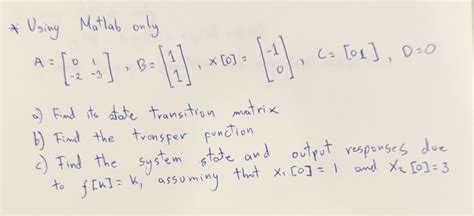 * Using Matlab only
A = [0 1 -2 -3], B = [1 1], x[0] = [-1 0], C = [0 1], D = 0
a) Find its state transition matrix
b) Find the transfer function
c) Find the system state and output responses due
to f[k] = k, assuming that x₁[0] = 1 and x₂[0] = 3